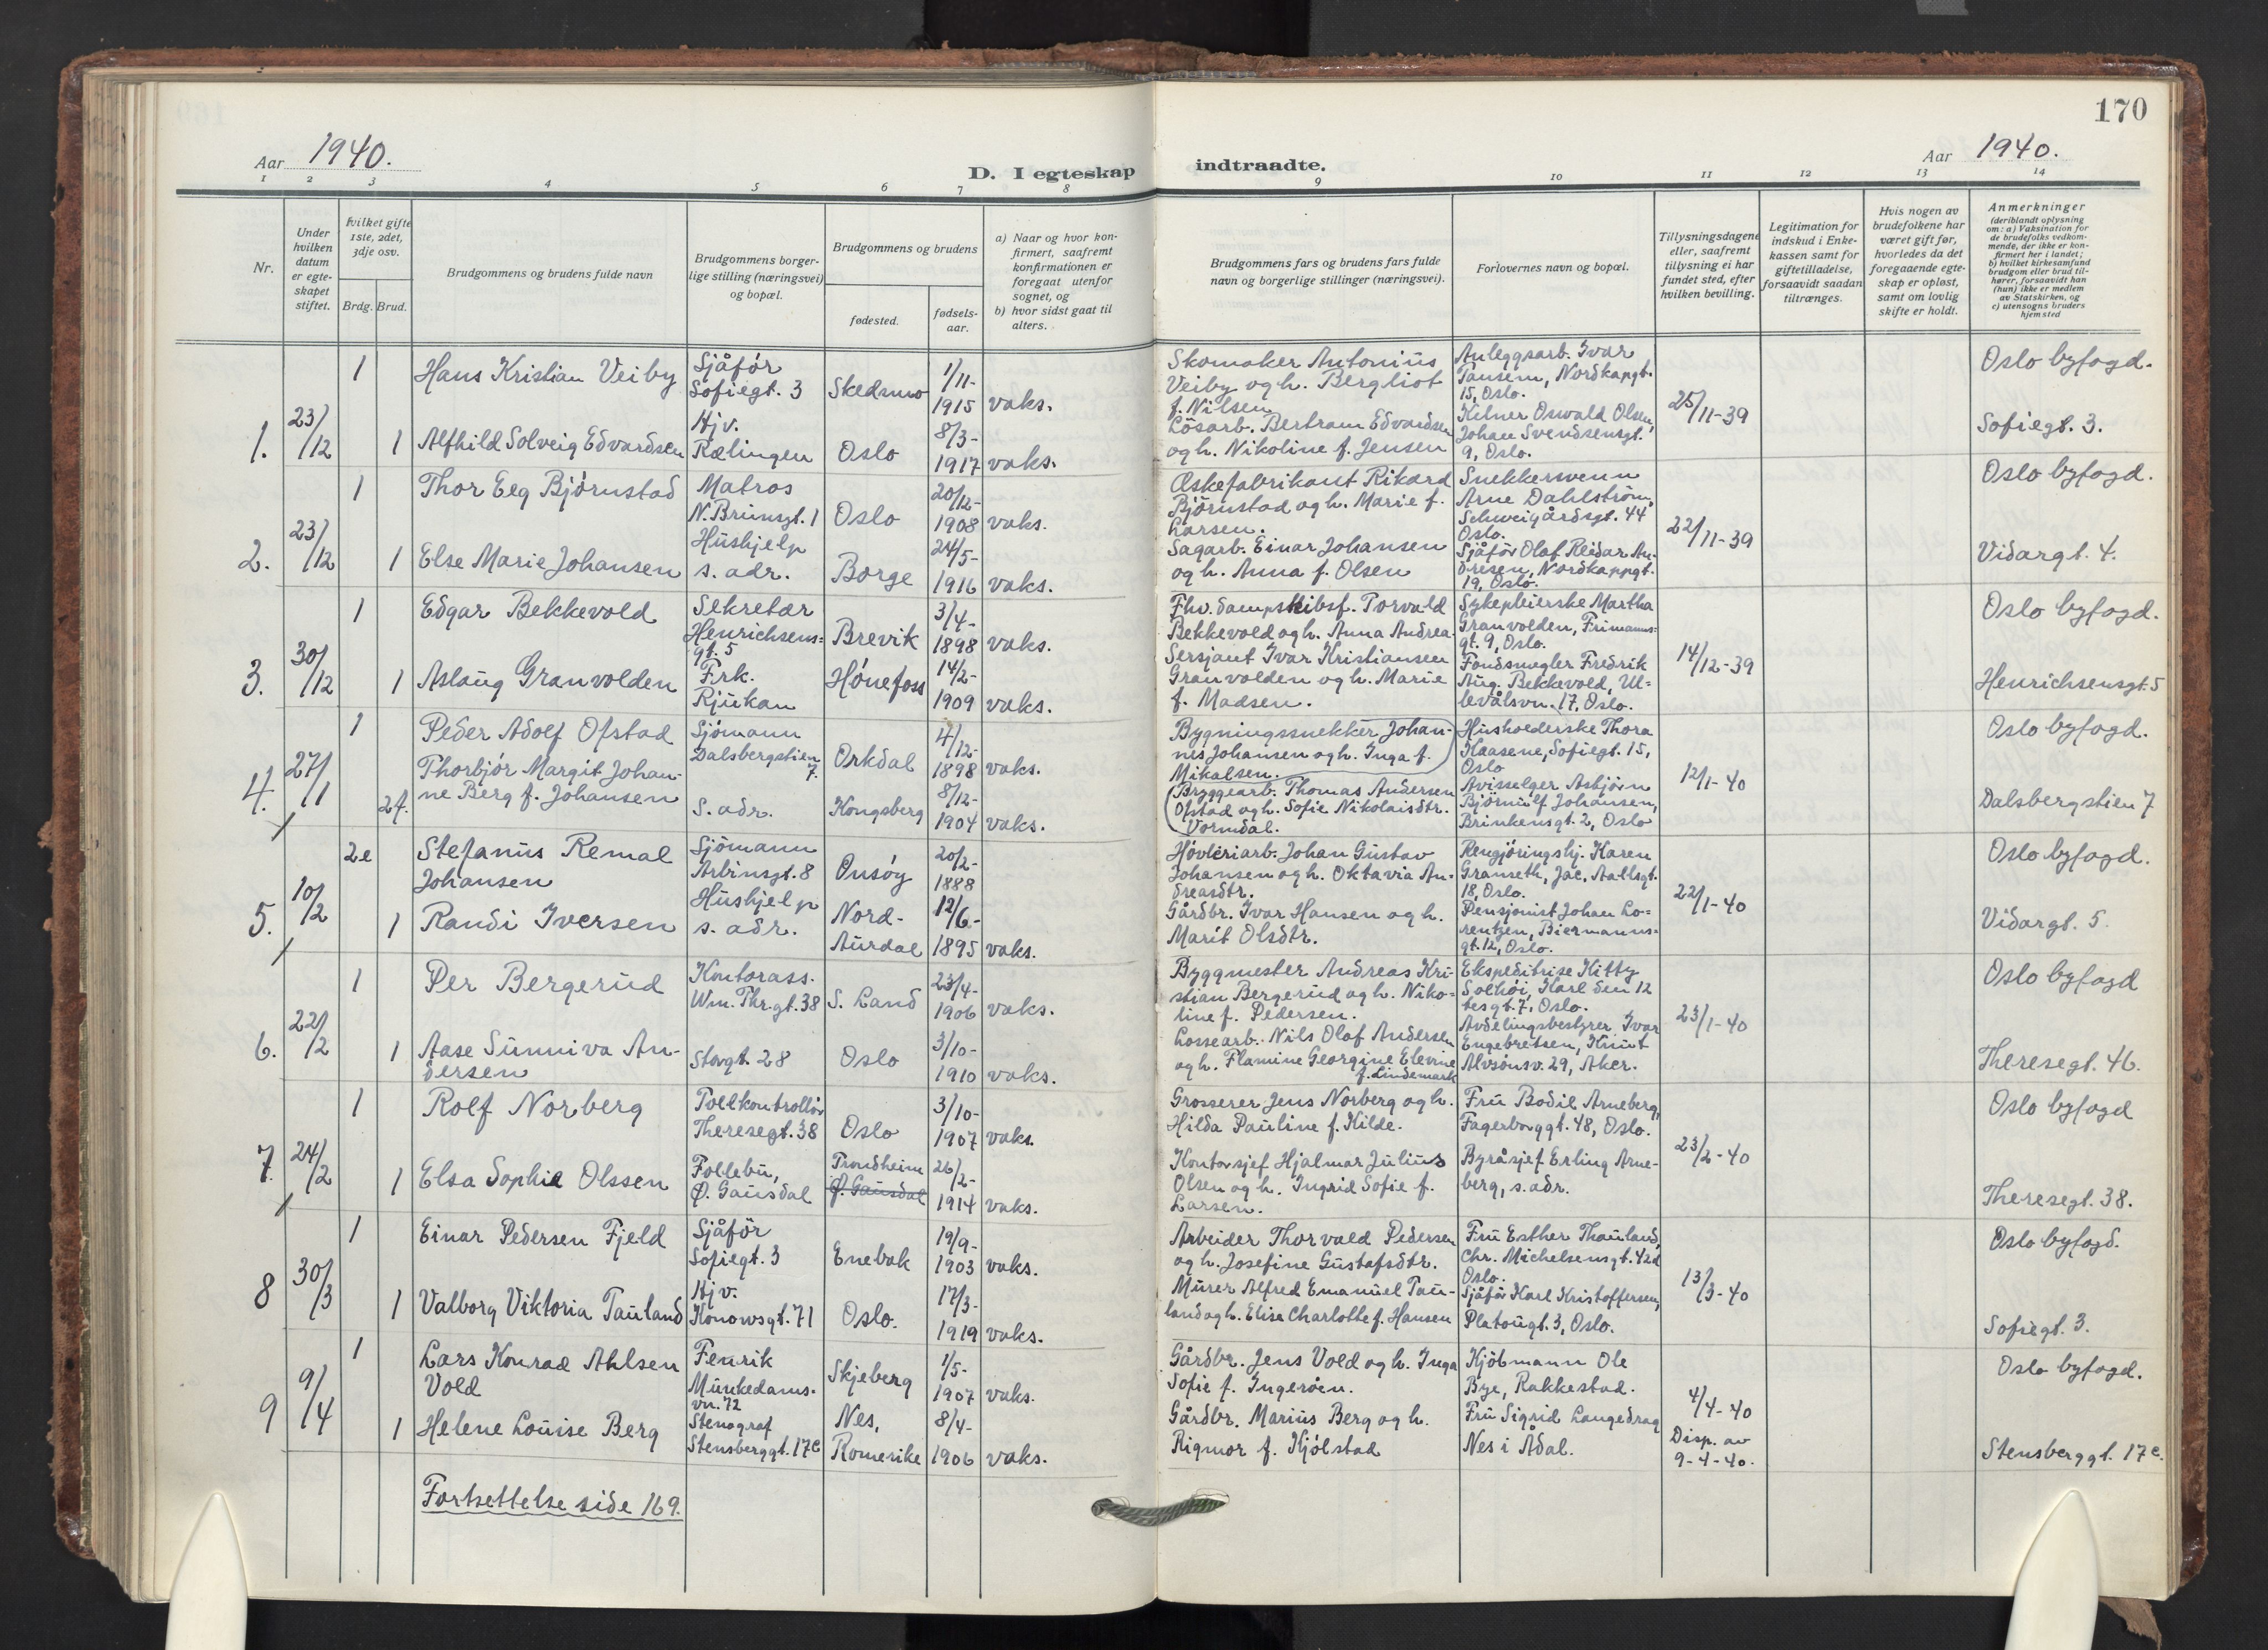 170
Aar 1940.
D. I egteskap indtraadte.
Aar 1940.
1 2 3 4 5 6 7 8 9 10 11 12 13 14
Nr.
Under hvilken datum er egteskapet stiftet.
Hvilket gifte 1ste, 2det, 3dje osv.
Brdg. Brud.
Brudgommens og brudens fulde navn
Brudgommens borgerlige stilling (næringsvei) og bopæl.
Brudgommens og brudens
fødested.
fødselsaar.
a) Naar og hvor konfirmert, saafremt konfirmationen er foregaat utenfor sognet, og
b) hvor sidst gaat til alters.
Brudgommens fars og brudens fars fulde navn og borgerlige stillinger (næringsvei).
Forlovernes navn og bopæl.
Tillysningsdagene eller, saafremt tillysning ei har fundet sted, efter hvilken bevilling.
Legitimation for indskud i Enkekassen samt for giftetilladelse, forsaavidt saadan tiltrænges.
Hvis nogen av brudefolkene har været gift før, hvorledes da det foregaaende egteskap er opløst, samt om lovlig skifte er holdt.
Anmerkninger
(deriblandt oplysning om: a) Vaksination for de brudefolks vedkommende, der ikke er konfirmert her i landet; b) hvilket kirkesamfund brudgom eller brud tilhører, forsaavidt han (hun) ikke er medlem av Statskirken, og c) utensogns bruders hjemsted
1. 23/12
1 Hans Kristian Veiby
Sjåfør
Sofiegt. 3
Skedsmo
1/11-
1915 vaks.
1 Alfhild Solveig Edvardsen
Hjv.
Rælingen
Oslo
8/3-
1917 vaks.
Skomaker Antonius
Veiby og h. Bergliot
f. Nilsen
Løsarb. Bertram Edvardsen
og h. Nikoline f. Jensen
Anleggsarb. Ivar
Tansem, Nordkapgt.
15, Oslo.
Kelner Oswald Olsen,
Johan Svendsensgt.
9, Oslo.
25/11-39
Oslo byfogd.
Sofiegt. 3.
2. 23/12
1 Thor Eeg Bjørnstad
Matros
N. Brunsgt. 1
Oslo
20/12-
1908 vaks.
1 Else Marie Johansen
Hushjelp
s. adr.
Borge
24/5-
1916 vaks.
Æskefabrikant Rikard
Bjørnstad og h. Marie f.
Larsen.
Sagarb. Einar Johansen
og h. Anna f. Olsen
Snekkersvenn
Arne Dahlstrøm,
Schweigårdsgt. 44
Oslo.
Sjåfør Olaf Reidar An-
dresen, Nordkappgt.
19, Oslo.
22/11-39
Oslo byfogd.
Vidargt. 4.
3. 30/12
1 Edgar Bekkevold
Sekretær
Henrichsens=
gt. 5
Brevik
3/4-
1898 vaks.
1 Aslaug Granvolden
Frk.
Rjukan
Hønefoss
14/2-
1909 vaks.
Fhv. dampskibsf. Torvald
Bekkevold og h. Anna Andrea.
Sersjant Ivar Kristiansen
Granvolden og h. Marie
f. Madsen.
Sykepleierske Martha
Granvolden, Frimanns=
gt. 9, Oslo.
Fondsmegler Fredrik
Aug. Bekkevold, Ul=
levålsvn. 17, Oslo.
14/12-39
Oslo byfogd.
Henrichsensgt. 5
4. 27/1
1 Peder Adolf Ofstad
Sjømann
Dalsbergstien
7.
Orkdal
4/12-
1898 vaks.
2f. Thorbjør Margit Johan-
ne Berg f. Johansen
S. adr.
Kongsberg
8/12-
1904 vaks.
Bygningssnekker Johan-
nes Johansen og h. Inga f.
Mikalsen.
Bryggearb. Thomas Andersen
Ofstad og h. Sofie Nikolaisdtr.
Vormdal.
Husholderske Thora
Kaasene, Sofiegt. 15,
Oslo
Avisselger Asbjørn
Bjørnulf Johansen,
Brinkensgt. 2, Oslo
12/1-40
Oslo byfogd.
Dalsbergstien 7
5. 10/2
2e Stefanus Remal
Johansen
Sjømann
Arbinsgt. 8
Onsøy
20/2-
1888
1 Randi Iversen
Hushjelp
s. adr.
Nord-
Aurdal
12/6-
1895 vaks.
Høvleriarb. Johan Gustav
Johansen og h. Oktavia An-
dreasdtr.
Gårdbr. Ivar Hansen og h.
Marit Olsdtr.
Rengjøringshj. Karen
Granseth, Jac. Aallsgt.
18, Oslo.
Pensjonist Johan Lo=
rentzen, Biermanns=
gt. 12, Oslo.
22/1-40
Oslo byfogd.
Vidargt. 5.
6. 22/2
1 Per Bergerud
Kontorass.
Wm. Thr. gt. 38
S. Land
23/4-
1906 vaks.
1 Aase Sunniva An-
dersen
Storgt. 28
Oslo
3/10-
1910 vaks.
Byggmester Andreas Kri-
stian Bergerud og h. Niko=
line f. Pedersen.
Lossearb. Nils Olaf Andersen
og h. Flamine Georgine Elevine
f. Lindemark
Ekspeditrise Kitty
Solhøi, Karl den 12
tesgt. 7, Oslo.
Avdelingsbestyrer Ivar
Engebretsen, Knut
Alvsønsv. 29, Aker.
23/1-40
Oslo byfogd
Theresegt. 46.
7. 24/2
1 Rolf Norberg
Tollkontrollør
Theresegt. 38
Oslo
3/10-
1907 vaks.
1 Elsa Sophie Olssen
Follebu,
Ø. Gausdal
Trondheim
Ø. Gausdal
26/2-
1914 vaks.
Grosserer Jens Norberg og h.
Hilda Pauline f. Kilde.
Kontorsjef Hjalmar Julius
Olsen og h. Ingrid Sofie f.
Larsen.
Fru Bodil Arneberg,
Fagerborggt. 48, Oslo.
Byråsjef Erling Arne-
berg, s. adr.
23/2-40
Oslo byfogd
Theresegt. 38.
8 30/3
1 Einar Pedersen Fjeld
Sjåfør
Sofiegt. 3
Enebak
19/9-
1903 vaks.
1 Valborg Viktoria Tauland
Hjv.
Konowsgt. 71
Oslo.
17/3-
1919 vaks.
Arbeider Thorvald Pedersen
og h. Josefine Gustafsdtr.
Murer Alfred Emanuel Tau-
land og h. Elise Charlotte f. Hansen
Fru Esther Thauland,
Chr. Michelsensgt. 42d
Oslo.
Sjåfør Karl Kristoffersen,
Platougt. 3, Oslo.
13/3-40
Oslo byfogd.
Sofiegt. 3.
9 9/4
1 Lars Konrad Ahlsen
Vold
Fenrik
Munkedams-
vn. 72
Skjeberg
1/5-
1907 vaks.
1 Helene Louise Berg
Stenograf
Stensberggt. 17c
Nes,
Romerike
8/4-
1906 vaks.
Gårdbr. Jens Vold og h. Inga
Sofie f. Ingerøen.
Gårdbr. Marius Berg og h.
Rigmor f. Kjølstad
Kjøbmann Ole
Bye, Rakkestad.
Fru Sigrid Langedrag
Nes i Ådal.
4/4-40
Disp. av
9-4-40.
Oslo byfogd.
Stensberggt. 17c.
Fortsettelse side 169.